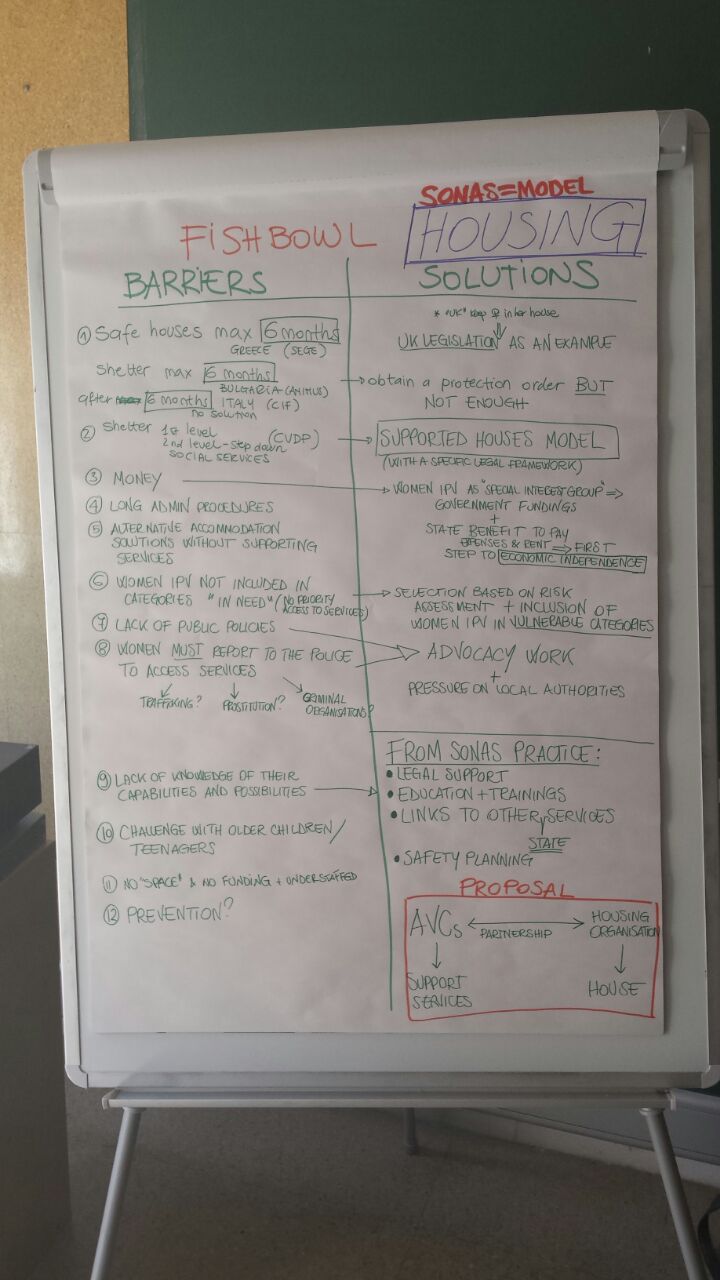 SONAS=MODEL
FISHBOWL
HOUSING
BARRIERS
① Safe houses max 6 months
GREECE (SEGE)
Shelter max 6 months
BULGARIA (ANIMUS)
after 6 months ITALY (CIF)
no solution
② Shelter 1st level
2nd level-step down (CVDP)
SOCIAL SERVICES
③ MONEY
④ LONG ADMIN PROCEDURES
⑤ ALTERNATIVE ACCOMMODATION
SOLUTIONS WITHOUT SUPPORTING
SERVICES
⑥ WOMEN IPV NOT INCLUDED IN
CATEGORIES "IN NEED" (NO PRIORITY
ACCESS TO SERVICES)
⑦ LACK OF PUBLIC POLICIES
⑧ WOMEN MUST REPORT TO THE POLICE
TO ACCESS SERVICES
TRAFFIKING? PROSTITUTION? CRIMINAL
ORGANISATIONS?
⑨ LACK OF KNOWLEDGE OF THEIR
CAPABILITIES AND POSSIBILITIES
⑩ CHALLENGE WITH OLDER CHILDREN/
TEENAGERS
⑪ NO "SPACE" & NO FUNDING + UNDERSTAFFED
⑫ PREVENTION?
SOLUTIONS
* "UK" keep ♀ in her house
UK LEGISLATION AS AN EXAMPLE
obtain a protection order BUT
NOT ENOUGH
SUPPORTED HOUSES MODEL
(WITH A SPECIFIC LEGAL FRAMEWORK)
WOMEN IPV AS "SPECIAL INTEREST GROUP" ⇒
GOVERNMENT FUNDINGS
+
STATE BENEFIT TO PAY
EXPENSES & RENT ⇒ FIRST
STEP TO ECONOMIC INDEPENDENCE
SELECTION BASED ON RISK
ASSESSMENT + INCLUSION OF
WOMEN IPV IN VULNERABLE CATEGORIES
ADVOCACY WORK
+
PRESSURE ON LOCAL AUTHORITIES
FROM SONAS PRACTICE:
• LEGAL SUPPORT
• EDUCATION + TRAININGS
• LINKS TO OTHER SERVICES
STATE
• SAFETY PLANNING
PROPOSAL
AVCs ↔ HOUSING
PARTNERSHIP ORGANISATION
↓ ↓
SUPPORT HOUSE
SERVICES